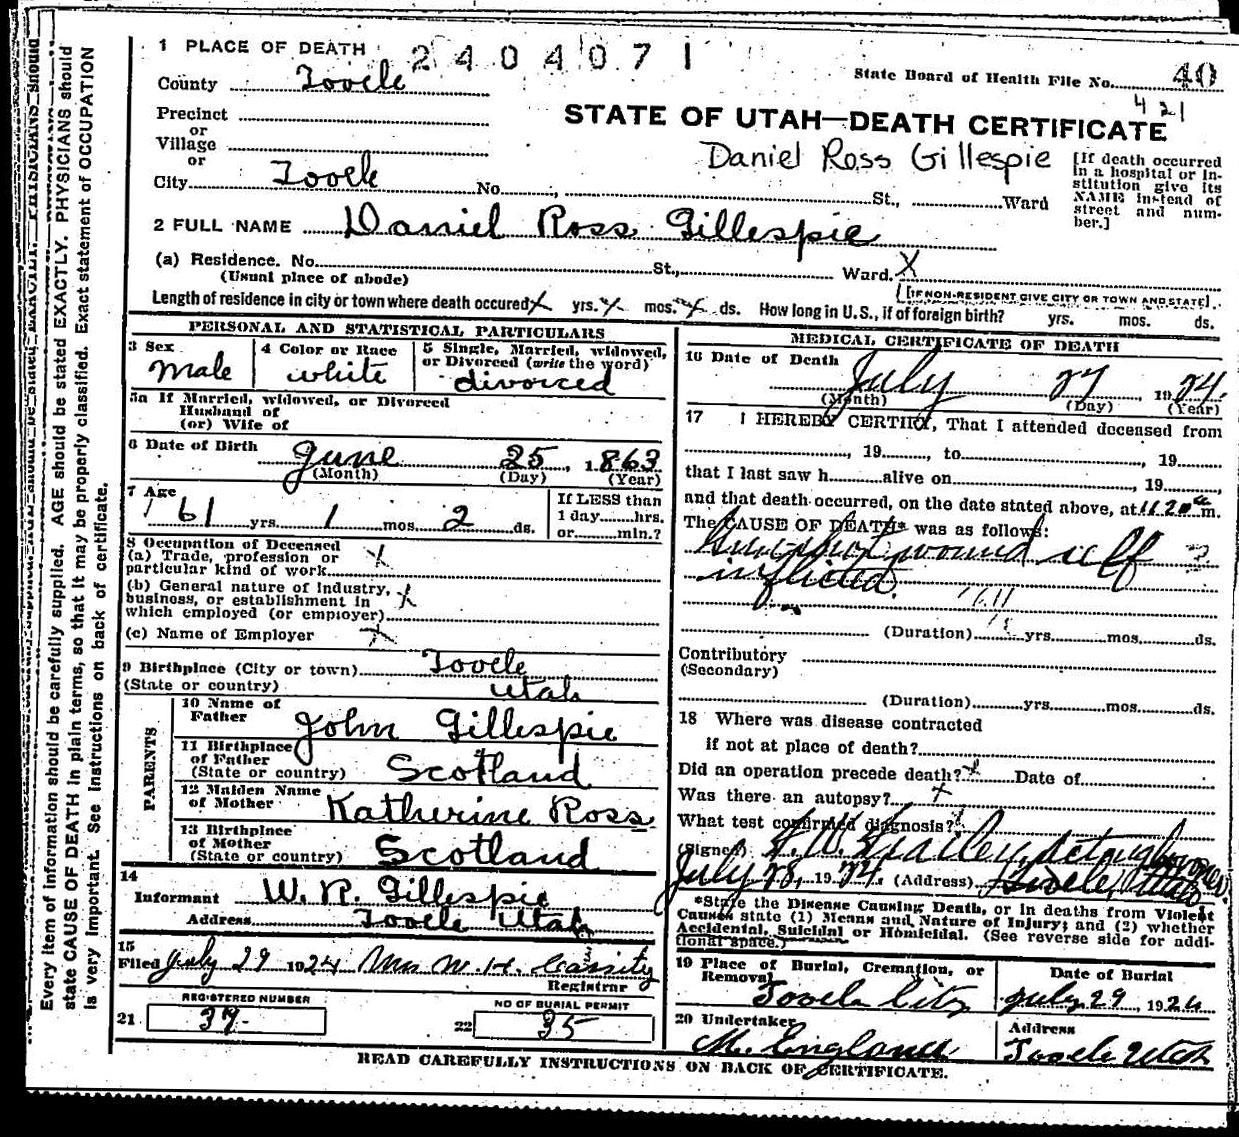 1 PLACE OF DEATH 2404071
State Board of Health File No. 40
County Tooele
421
Precinct
or
Village
or
City Tooele No. St., Ward
STATE OF UTAH—DEATH CERTIFICATE
Daniel Ross Gillespie
[If death occurred
in a hospital or in-
stitution give its
NAME instead of
street and num-
ber.]
2 FULL NAME Daniel Ross Gillespie
(a) Residence. No. St., Ward. X
(Usual place of abode)
[IF NON-RESIDENT GIVE CITY OR TOWN AND STATE]
Length of residence in city or town where death occured X yrs. X mos. X ds. How long in U.S., if of foreign birth? yrs. mos. ds.
PERSONAL AND STATISTICAL PARTICULARS
3 Sex
male
4 Color or Race
white
5 Single, Married, widowed,
or Divorced (write the word)
divorced
5a If Married, widowed, or Divorced
Husband of
(or) Wife of
6 Date of Birth June 25, 1863
(Month) (Day) (Year)
7 Age
61 yrs. 1 mos. 2 ds.
If LESS than
1 day hrs.
or min.?
8 Occupation of Deceased
(a) Trade, profession or
particular kind of work X
(b) General nature of industry,
business, or establishment in
which employed (or employer) X
(c) Name of Employer X
9 Birthplace (City or town) Tooele
(State or country) Utah
PARENTS
10 Name of
Father John Gillespie
11 Birthplace
of Father
(State or country) Scotland
12 Maiden Name
of Mother Katherine Ross
13 Birthplace
of Mother
(State or country) Scotland
14
Informant W. R. Gillespie
Address Tooele Utah
15
Filed July 29 1924 Mrs W. H. Cassity
Registrar
REGISTERED NUMBER
21 37
NO OF BURIAL PERMIT
22 35
MEDICAL CERTIFICATE OF DEATH
16 Date of Death
July 27, 1924
(Month) (Day) (Year)
17 I HEREBY CERTIFY, That I attended deceased from
, 19 , to , 19
that I last saw h alive on , 19 ,
and that death occurred, on the date stated above, at 11.20 a m.
The CAUSE OF DEATH* was as follows:
Gun shot wound self ?
inflicted.
(Duration) yrs. mos. ds.
Contributory
(Secondary)
(Duration) yrs. mos. ds.
18 Where was disease contracted
if not at place of death?
Did an operation precede death? X Date of
Was there an autopsy? X
What test confirmed diagnosis?
(Signed)
July 28, 1924. (Address) Tooele, Utah
*State the Disease Causing Death, or in deaths from Violent
Causes state (1) Means and Nature of Injury; and (2) whether
Accidental, Suicidal or Homicidal. (See reverse side for addi-
tional space.)
19 Place of Burial, Cremation, or
Removal
Tooele City
Date of Burial
July 29, 1924
20 Undertaker
M. England
Address
Tooele Utah
READ CAREFULLY INSTRUCTIONS ON BACK OF CERTIFICATE.
Every item of information should be carefully supplied. AGE should be stated EXACTLY. PHYSICIANS should
state CAUSE OF DEATH in plain terms, so that it may be properly classified. Exact statement of OCCUPATION
is very important. See instructions on back of certificate.